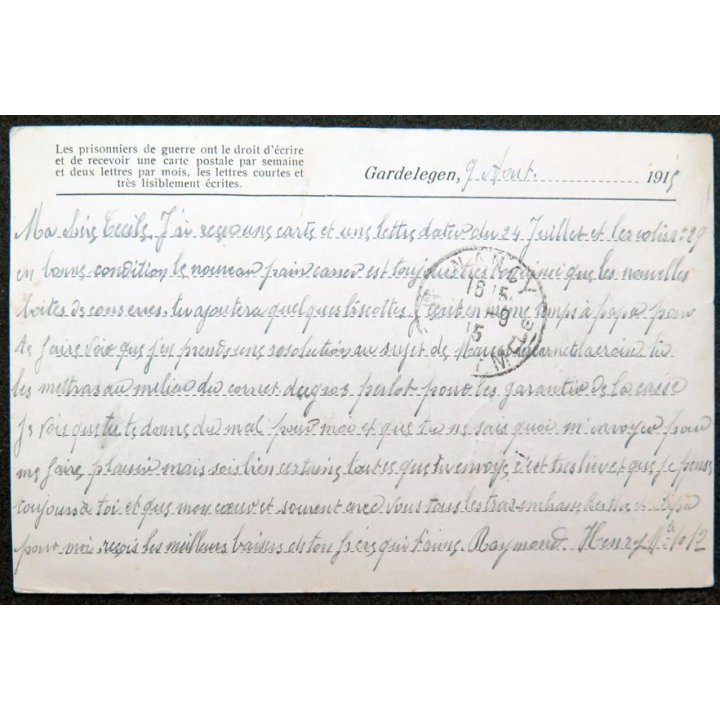 Les prisonniers de guerre ont le droit d'écrire
et de recevoir une carte postale par semaine
et deux lettres par mois, les lettres courtes et
très lisiblement écrites.
Gardelegen, 9 Aout. 1915
Ma chère Cecile. J'ai reçu une carte et une lettre datée du 24 Juillet et les colis 29
en bonne condition le nouveau pain casser est toujours très que les nouvelles
boites de conserves. tu ajoutera quelques biscottes. J'écrit en même temps à papa pour
te faire voir que j'en prends une resolution au sujet de
les mettras au milieu du cornet de gros perlot pour les garantir de la casse
Je vois que tu te donne du mal pour moi et que tu ne sais quoi m'envoyer pour
me faire plaisir mais sois bien certaine toutes que tu envoye c'est très bien et que je pense
toujours à toi et que mon cœur est souvent avec vous tous
pour moi, reçois les meilleurs baisers de ton frère qui t'aime. Raymond. Henry
NANCY
16 15
9
15